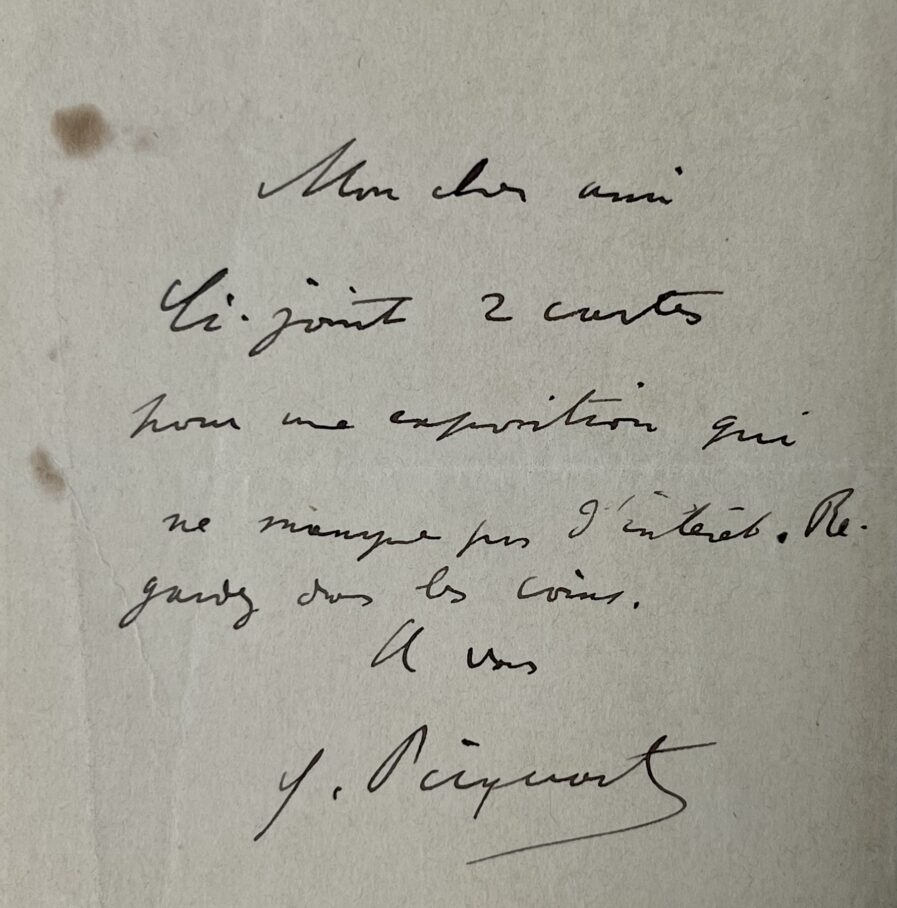 Mon cher ami
Ci-joint 2 cartes
pour une exposition qui
ne manque pas d'intérêt. Re-
gardez dans les coins.
A vous
G. Picquart